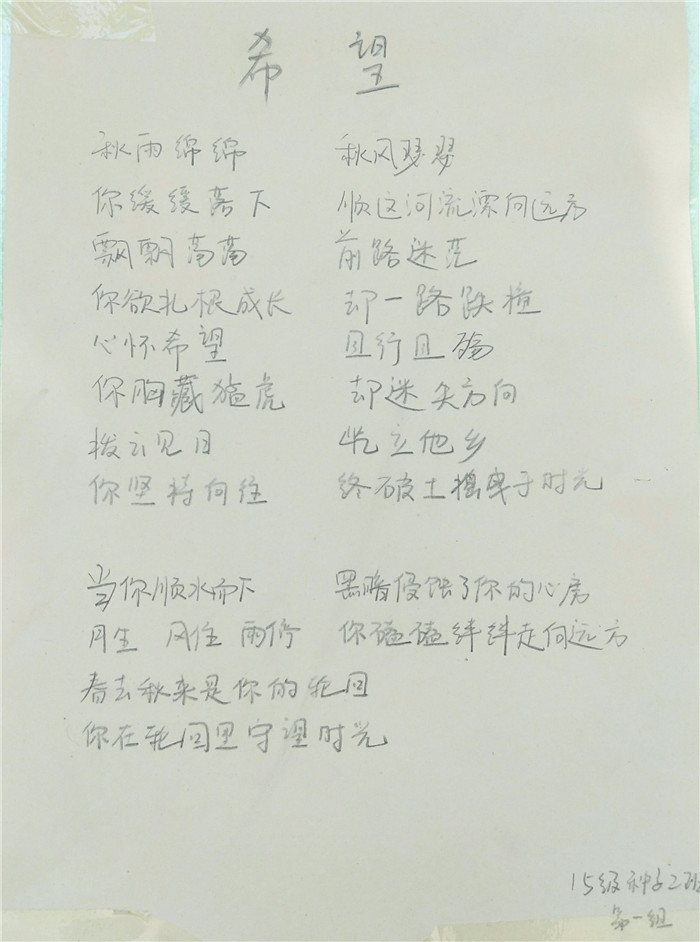 希 望
秋雨绵绵 秋风瑟瑟
你缓缓落下 顺这河流漂向远方
飘飘荡荡 前路迷茫
你欲扎根成长 却一路跌撞
心怀希望 且行且殇
你胸藏猛虎 却迷失方向
拨云见日 屹立他乡
你坚持向往 终破土摇曳于时光
当你顺水而下 黑暗侵蚀了你的心房
月生 风住 雨停 你磕磕绊绊走向远方
春去秋来是你的轮回
你在轮回里守望时光
15级种子2班
第一组